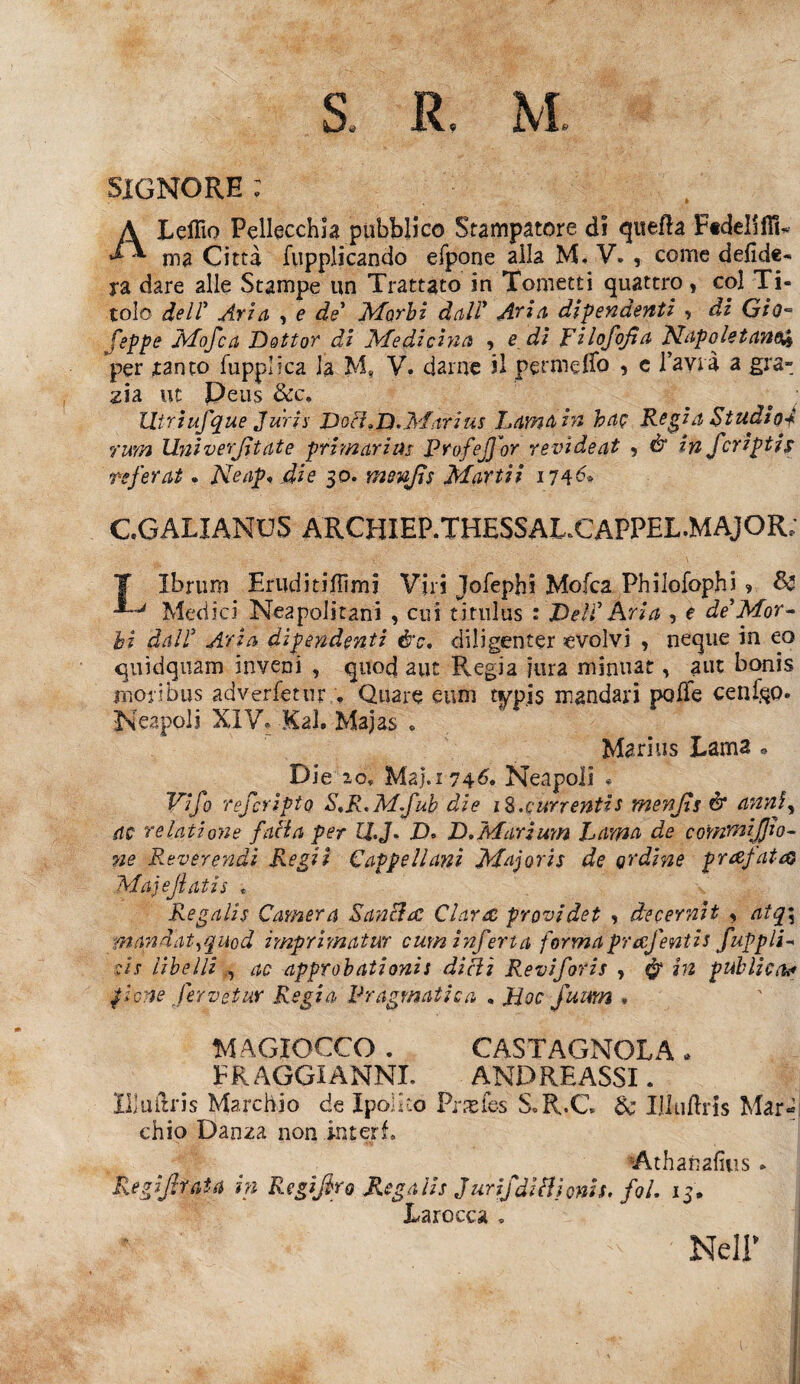 S. R. M.
SIGNORE :
ALeſſio Pellecchia pubblico Stampatore di queſta Fedeliſſi-
ma Città ſupplicando eſpone alla M. V. , come deſide-
ra dare alle Stampe un Trattato in Tometti quattro , col Ti-
tolo dell' Aria , e de' Morbi dall' Aria dipendenti , di Gio-
ſeppe Moſca Dottor di Medicina , e di Filoſofia Napoletano;
per tanto ſupplica la M. V. darne il permeſſo , e l'avrà a gra-
zia ut Deus &c.
Utriuſque Juris Doct.D.Marius Lama in hac Regia Studio-
rum Univerſitate primarius Profeſſor revideat , & in ſcriptis
referat . Neap. die 30. menſis Martii 1746.
C.GALIANUS ARCHIEP.THESSAL.CAPPEL.MAJOR.
LIbrum Eruditiſſimi Viri Joſephi Moſca Philoſophi , &
Medici Neapolitani , cui titulus : Dell' Aria , e de' Mor-
bi dall' Aria dipendenti &c. diligenter evolvi , neque in eo
quidquam inveni , quod aut Regia jura minuat , aut bonis
moribus adverſetur . Quare eum typis mandari poſſe cenſeo.
Neapoli XIV. Kal. Majas .
Marius Lama .
Die 20. Maj.1746. Neapoli .
Viſo reſcripto S.R.M.ſub die 18.currentis menſis & anni,
ac relatione facta per U.J. D. D.Marium Lama de commiſſio-
ne Reverendi Regii Cappellani Majoris de ordine præfatæ
Majeſtatis .
Regalis Camera Sanctæ Claræ providet , decernit , atq;
mandat,quod imprimatur cum inſerta forma præſentis ſuppli-
cis libelli , ac approbationis dicti Reviſoris , & in publica-
tione ſervetur Regia Pragmatica . Hoc ſuum .
MAGIOCCO . CASTAGNOLA .
FRAGGIANNI. ANDREASSI .
Illuſtris Marchio de Ipolito Præſes S.R.C. & Illuſtris Mar-
chio Danza non interf.
Athanaſius .
Regiſtrata in Regiſtro Regalis Juriſdictionis. fol. 13.
Larocca .
Nell'